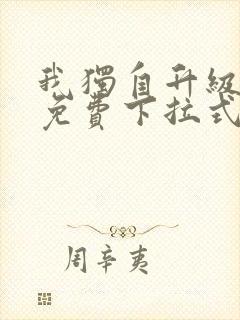 我獨自升級
免費下拉式
周辛夷